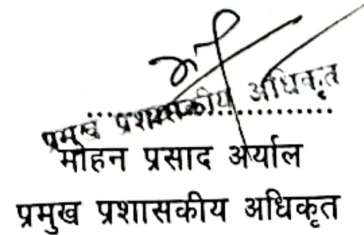 प्रमुख प्रशासकीय अधिकृत
मोहन प्रसाद अर्याल
प्रमुख प्रशासकीय अधिकृत